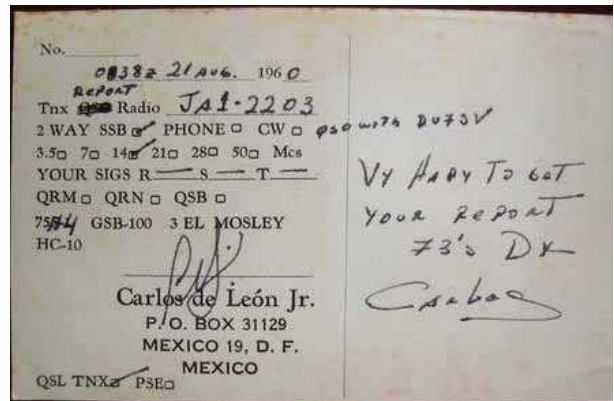 No.
0038z 21 AUG. 1960
REPORT
Tnx QSO Radio JA1-2203
2 WAY SSB PHONE CW QSO WITH DU7SV
3.5 7 14 21 28 50 Mcs
YOUR SIGS R — S — T —
QRM QRN QSB
GSB-100 3 EL MOSLEY
HC-10
Carlos de León Jr.
P. O. BOX 31129
MEXICO 19, D. F.
MEXICO
QSL TNX PSE
VY HAPY TO GOT
YOUR REPORT
73's DX
Carlos